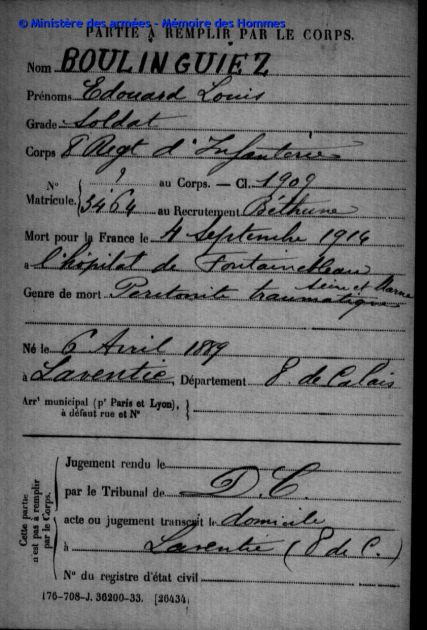 © Ministère des armées - Mémoire des Hommes
PARTIE À REMPLIR PAR LE CORPS.
Nom BOULINGUIEZ
Prénoms Edouard Louis
Grade Soldat
Corps 8 Regt d'Infanterie
N° ? au Corps. — Cl. 1909
Matricule. 3464 au Recrutement Béthune
Mort pour la France le 4 Septembre 1914
à l'hôpital de Fontainebleau
Seine et Marne
Genre de mort Peritonite traumatique
Né le 6 Avril 1889
à Laventie, Département P. de Calais
Arrt municipal (pr Paris et Lyon),
à défaut rue et N°
Cette partie
n'est pas à remplir
par le Corps.
Jugement rendu le
par le Tribunal de D.C.
acte ou jugement transcrit le domicile
à Laventie (P de C.)
N° du registre d'état civil
176-708-J. 36200-33. [26434]